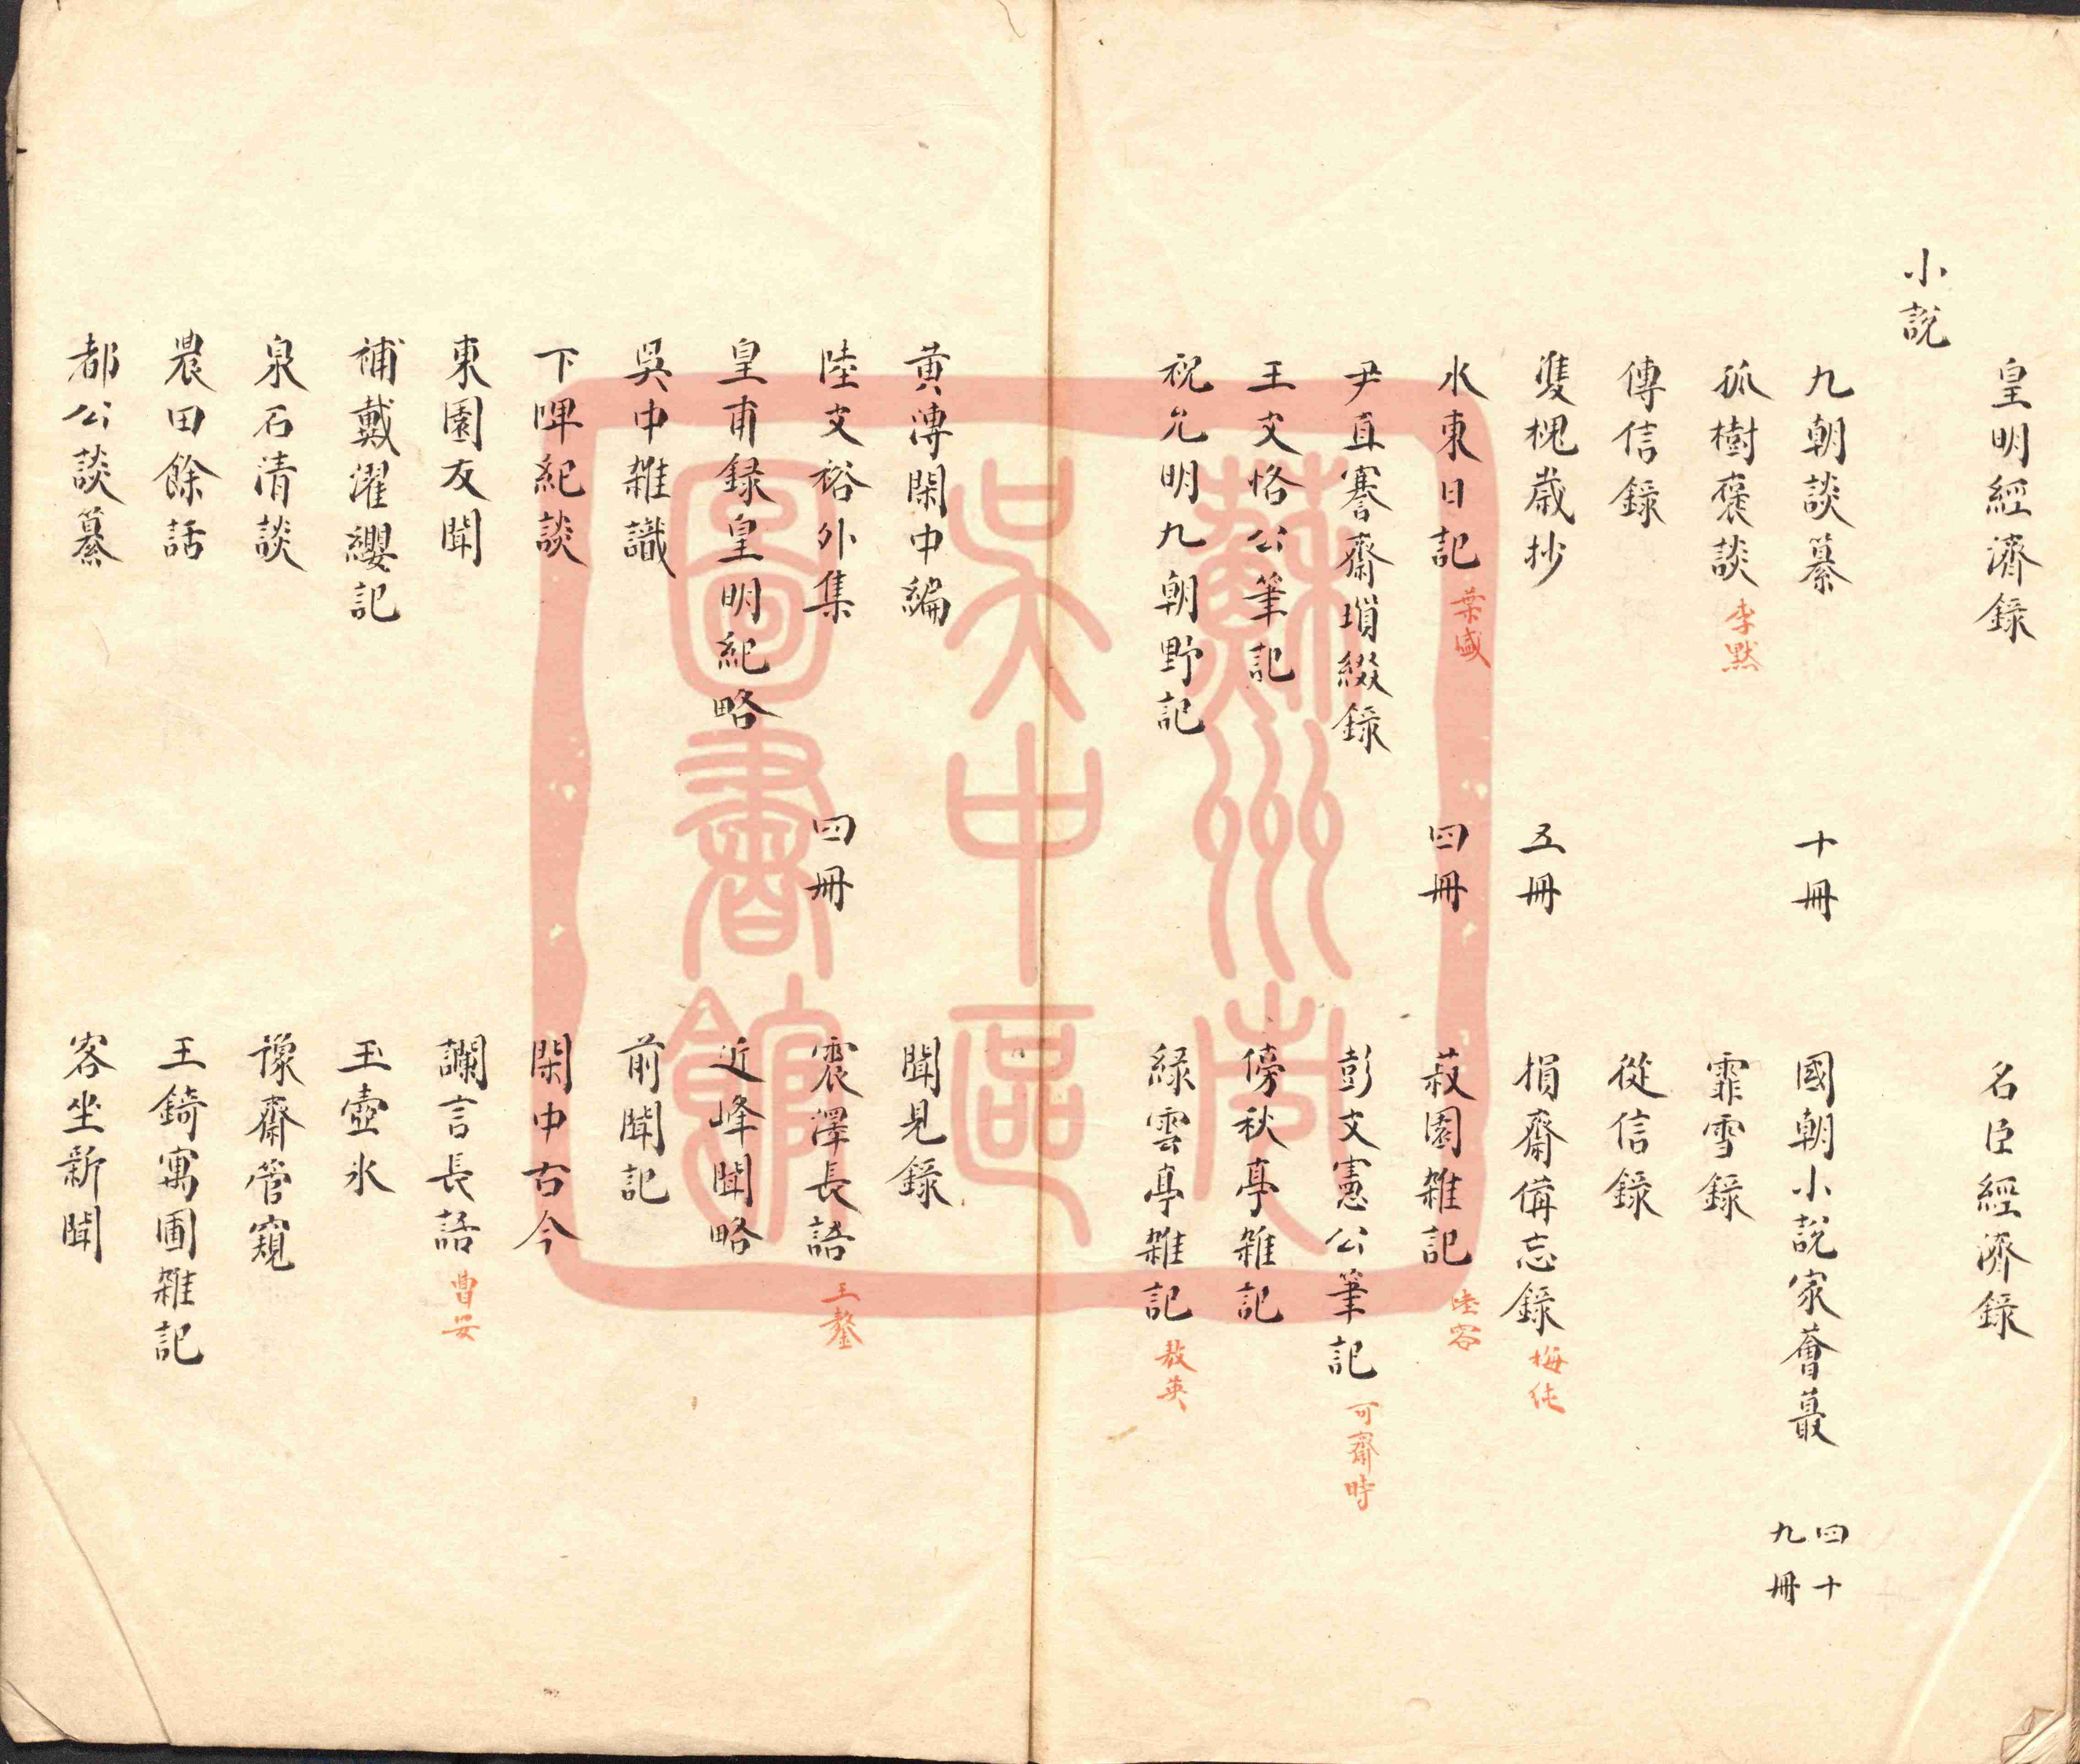 皇明經濟錄 名臣經濟錄
小說
九朝談纂 十冊 國朝小說家薈蕞 四十九冊
孤樹裒談 李默 霏雪錄
傳信錄 從信錄
雙槐歲抄 五冊 損齋備忘錄 梅純
水東日記 葉盛 四冊 菽園雜記 陸容
尹直謇齋瑣綴錄 彭文憲公筆記 可齋時
王文恪公筆記 傍秋亭雜記
祝允明九朝野記 綠雲亭雜記 敖英
黃溥閑中編 聞見錄
陸文裕外集 四冊 震澤長語 王鏊
皇甫録皇明紀略 近峰聞略
吳中雜識 前聞記
下睥紀談 閑中古今
東園友聞 讕言長語 曹安
補戴濯纓記 玉壺氷
泉石清談 豫齋管窺
農田餘話 王錡寓圃雜記
都公談纂 客坐新聞
蘇州市
吳中區
圖書館